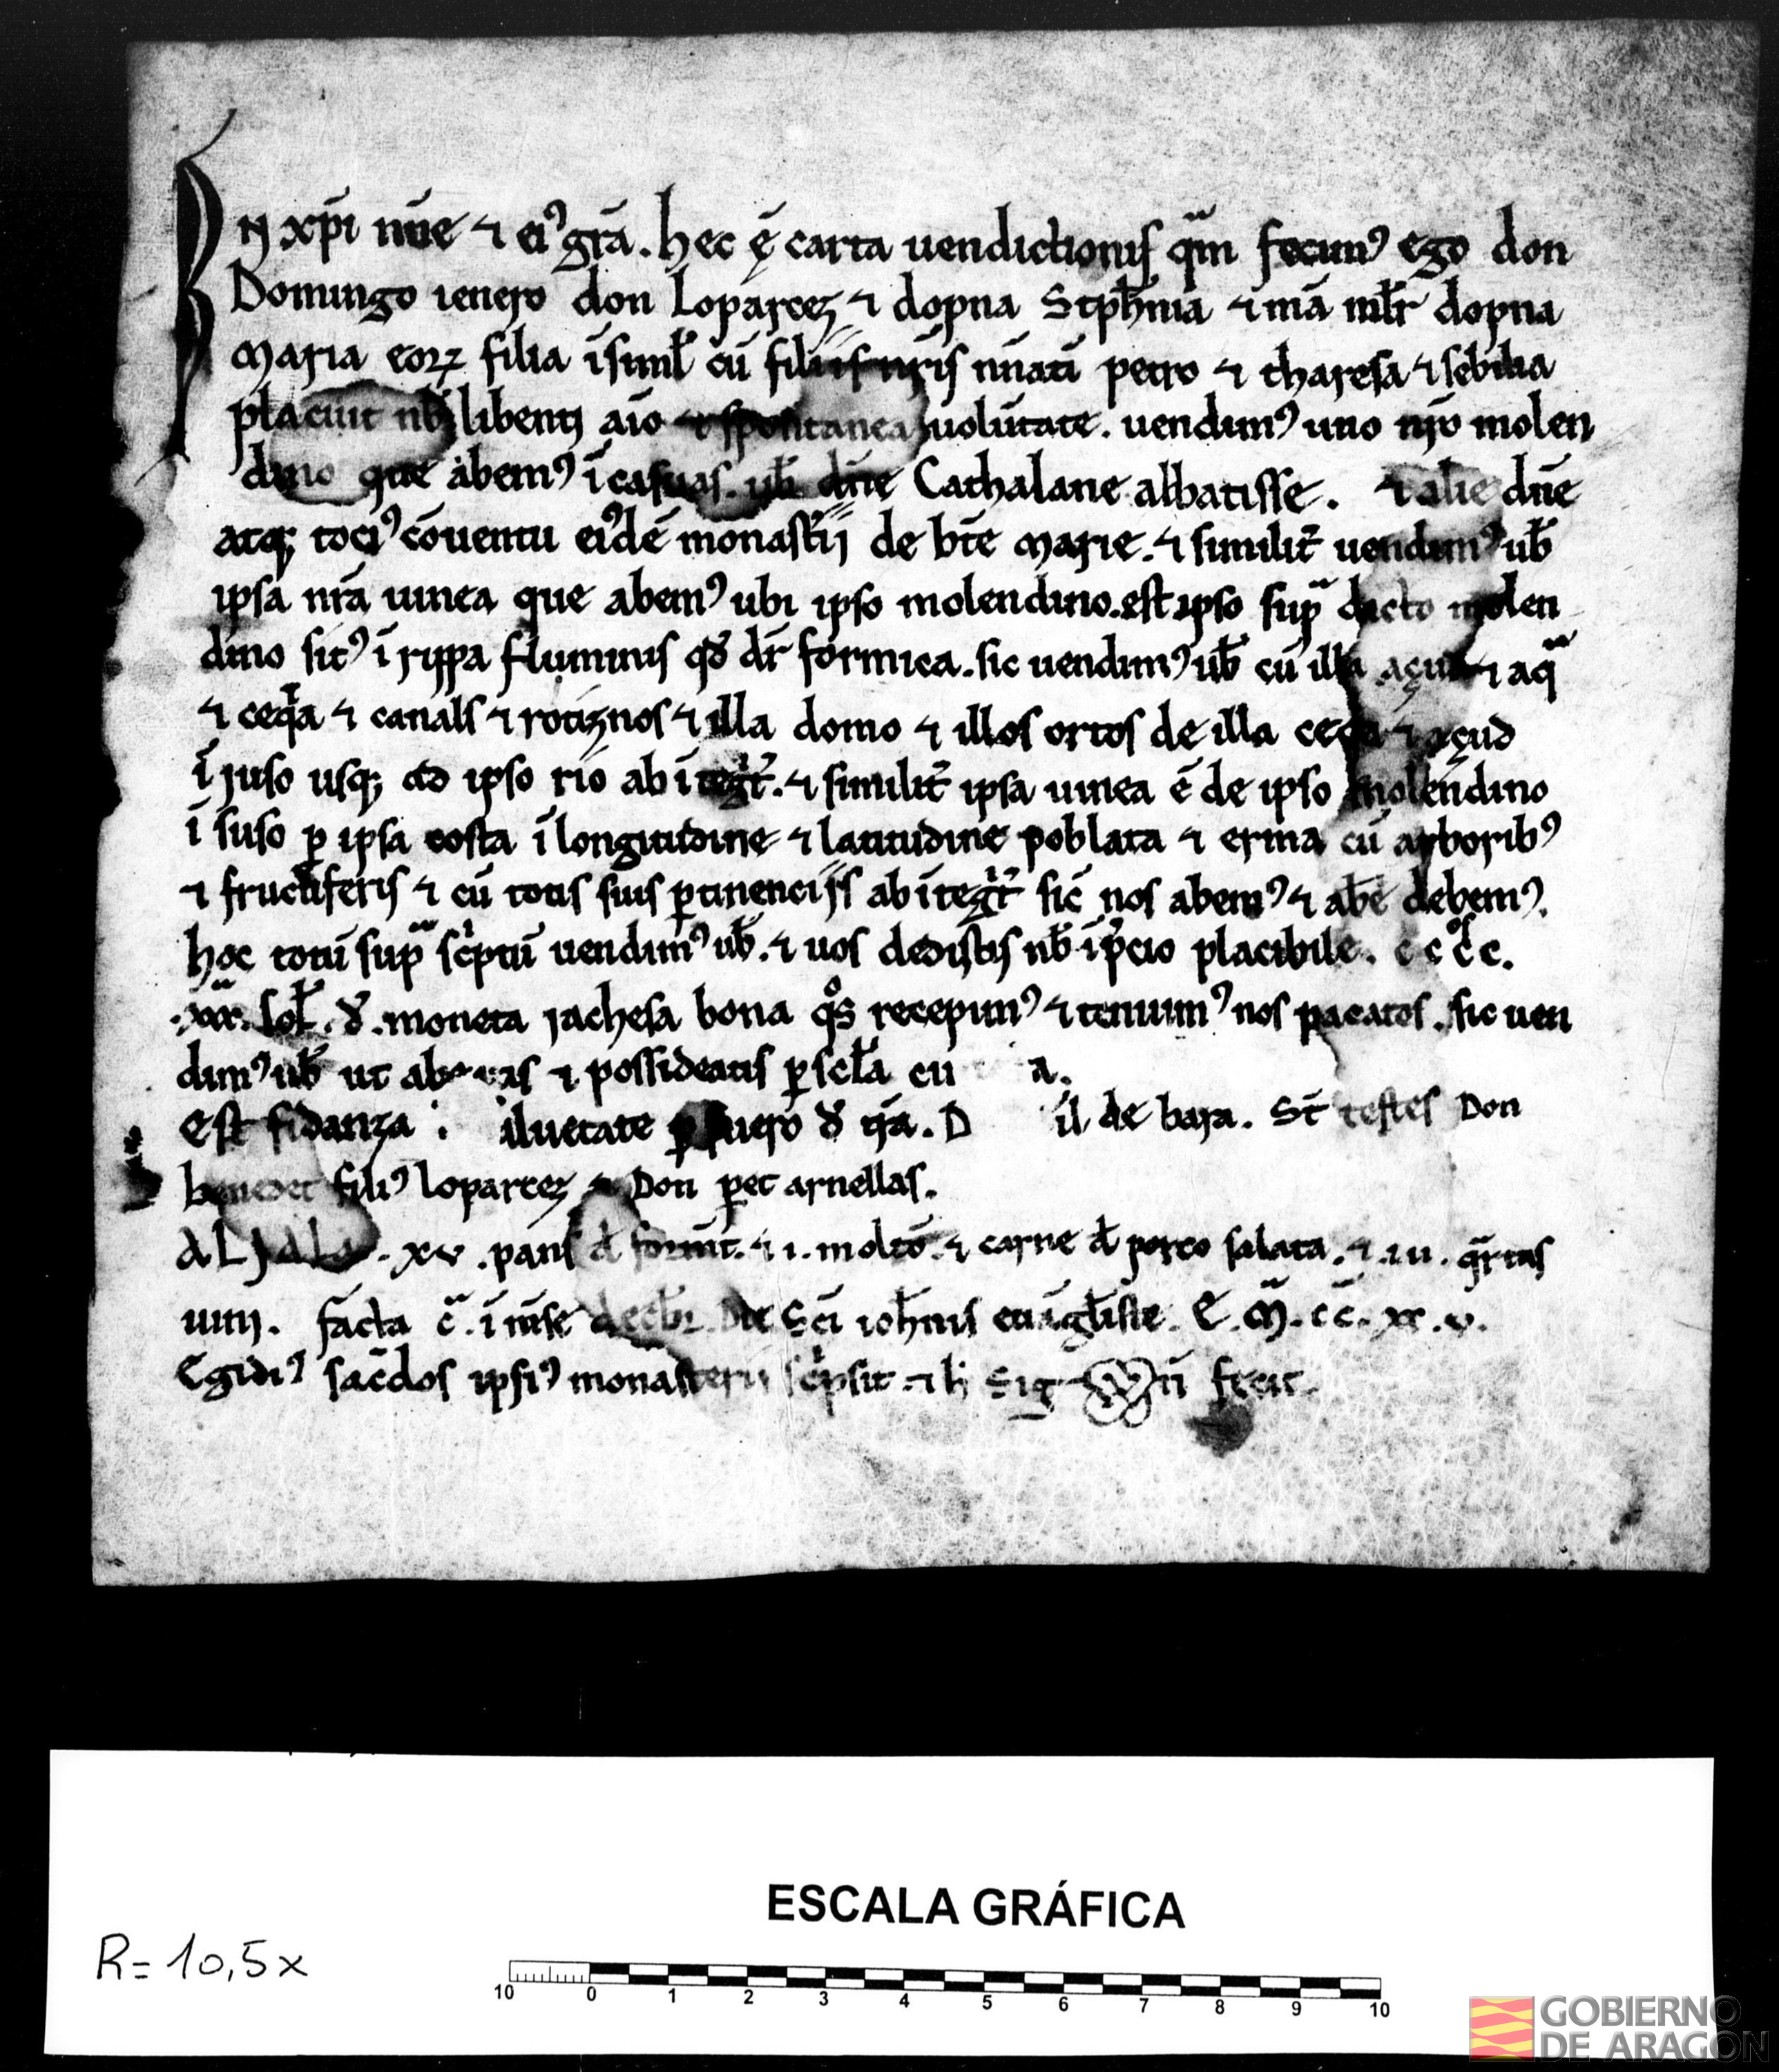 IN xp̄i nn̄e ⁊ ei᾽ gr̄a. hec ę̄ carta uendictionis qͣm fecim᾽ ego don
Domingo ienero don Loparcez ⁊ dopna Stph̄nia ⁊ mā ml̄r dopna
Maria eoꝝ filia īsiml̄ cū filiis nr̄is nn̄ati petro ⁊ tharesa ⁊ sebilia
placuit nb̄ libenti aīo ⁊ spontanea uolūtate. uendim᾽ uno nr̄o molen
dino que abem᾽ ī casuas. ub̄ dn̄e Cathalane abbatisse. ⁊ alie dn̄e
atq; toci᾽ cōuentu ei᾽dē monastīj de bt̄e Marie. ⁊ similit̄ uendim᾽ ub̄
ipsa nr̄a uinea que abem᾽ ubi ipso molendino. est ipso supͣ dicto molen
dino sit᾽ ī rippa fluminis qđ dr̄ formica. sic uendim᾽ ub̄ cū illa açut ⁊ aqͣ
⁊ ceqͥa ⁊ canals ⁊ rotiznos ⁊ illa domo ⁊ illos ortos de illa ceqa ⁊ açud
ī juso usq; ad ipso rio ab ītegͬt̄. ⁊ similit̄ ipsa uinea ē de ipso molendino
ī suso ꝑ ipsa costa ī longitudine ⁊ latitudine poblata ⁊ erma cū arborib᾽
⁊ fructiferis ⁊ cū totis suis ꝑtinencijs ab ītegͬt̄ sic̄ nos abem᾽ ⁊ abe̅ debem᾽.
hoc totū supͣ scͥptū uendim᾽ ub̄. ⁊ uos dedistis nb̄ ī p̄cio placibile. c c c c.
.xxͣ. sol̄. đ. moneta jachesa bona qͦs recepim᾽ ⁊ tenuim᾽ nos pacatos. sic uen
dim᾽ ub̄ ut ab as ⁊ possideatis ꝑ scl̄a cu a.
Est fidanza iluetate ꝑ fuero đ t̄ra. D il de baja. St̄ testes Don
benedet fili᾽ loparcez ⁊ Don ꝑet arnellas.
ALJala. xv. pans đ form̄t. ⁊ i. moltō. ⁊ carne đ porco salata. ⁊ .iii. qͣrtas
uinj. facta cͣ. ī mn̄se decb̄r. Die Sc̄i ioh̄nis euāgl̄iste. E. Mͣ. cc̄. xx. v.
Egidi᾽ sac̄dos ipsi᾽ monasterii scͥpsit ⁊ h Sig nū fecit.
ESCALA GRÁFICA
R = 10,5 x
10 0 1 2 3 4 5 6 7 8 9 10
GOBIERNO
DE ARAGON